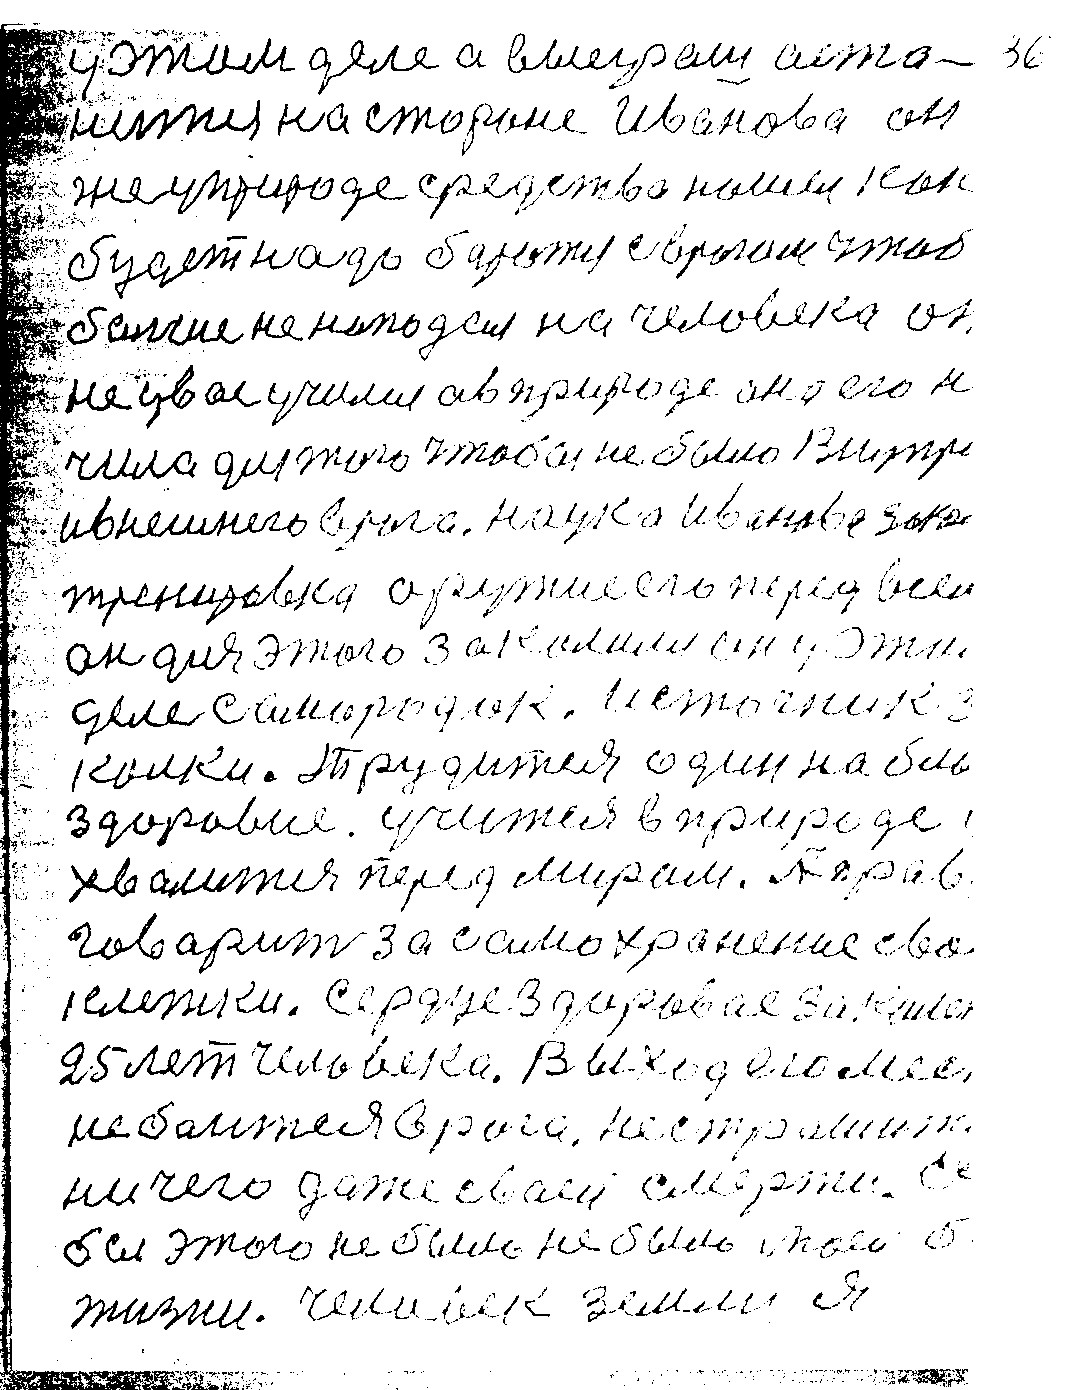 у этом деле а выеграш аста- 36
нится на стороне Иванова он
же у природе средства нашел как
будет надо бароться с врагом чтоб
больше не нападал на человека он
не у вас учился а в природе она его н
чила для того чтобы не было Внутре
и внешнего врага. наука Иванова зака
тренировка оружие его перед всем
он для этого закалился он у этим
деле Самородок. Источник з
калки. Трудится один на бла
здоровие. учится в природе
хвалится перед мирам. А прав
говарит за само хранение сва
клетки. Сердце здоровае закален
25 лет человека. Выход его мес
не баится врага, не страшитс
ничего даже сваей смерти. Се
бы этого не было не было моей б
жизни. Человек земли я